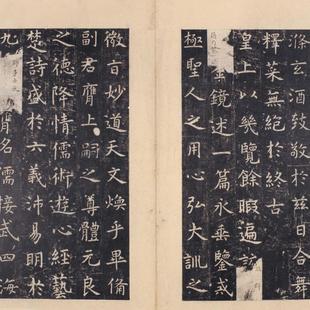 滌玄酒致敬於茲日合舞
釋菜無絕於終古
皇上以幾覽餘暇遍該
金鏡述一篇永垂鑒戒
極聖人之用心弘大訓之
微旨妙道天文煥乎畢備
副君膺上嗣之尊體元良
之德降情儒術遊心經藝
楚詩盛於六義沛易明於
九師多士膺名儒接武四海